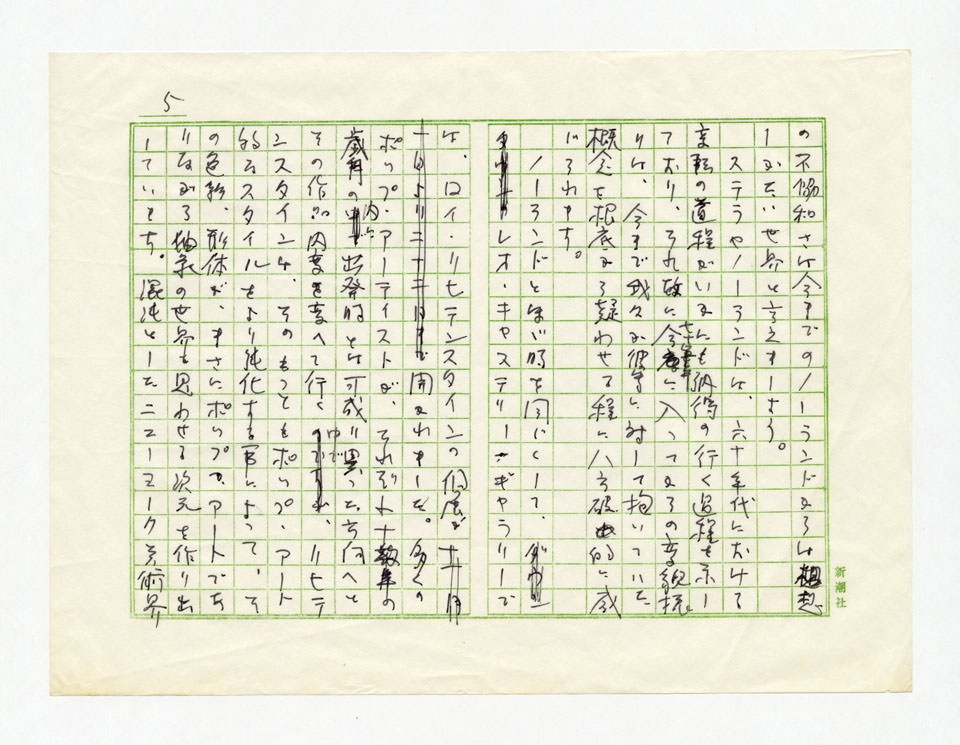 5
の不協和さは今までのノーランドからは
しがたい世界と言えましょう。
ステラやノーランドは、六十年代における
変転の道程がいかにも納得の行く過程を示し
ており、それ故に七十年代に入ってからの変貌振
りは、今まで我々が彼等に対して抱いていた
概念を根底から疑わせる程に八方破れ的に感
じられます。
ノーランドとほぼ時を同じくして、
レオ・キャステリー・ギャラリーで
は、ロイ・リヒテンスタインの個展が
開かれました。多くの
ポップ・アーティストが、それぞれ十数年の
歳月の内に出発時とは可成り異った方向へと
その作品内容を変へて行く中で、リヒテ
ンスタインは、そのもっともポップ・アート
的なスタイルをより純化する事によって、そ
の色彩、形体が、まさにポップ・アートであ
りながら抽象の世界を思わせる次元を作り出
しています。混沌としたニューヨーク美術界
新潮社